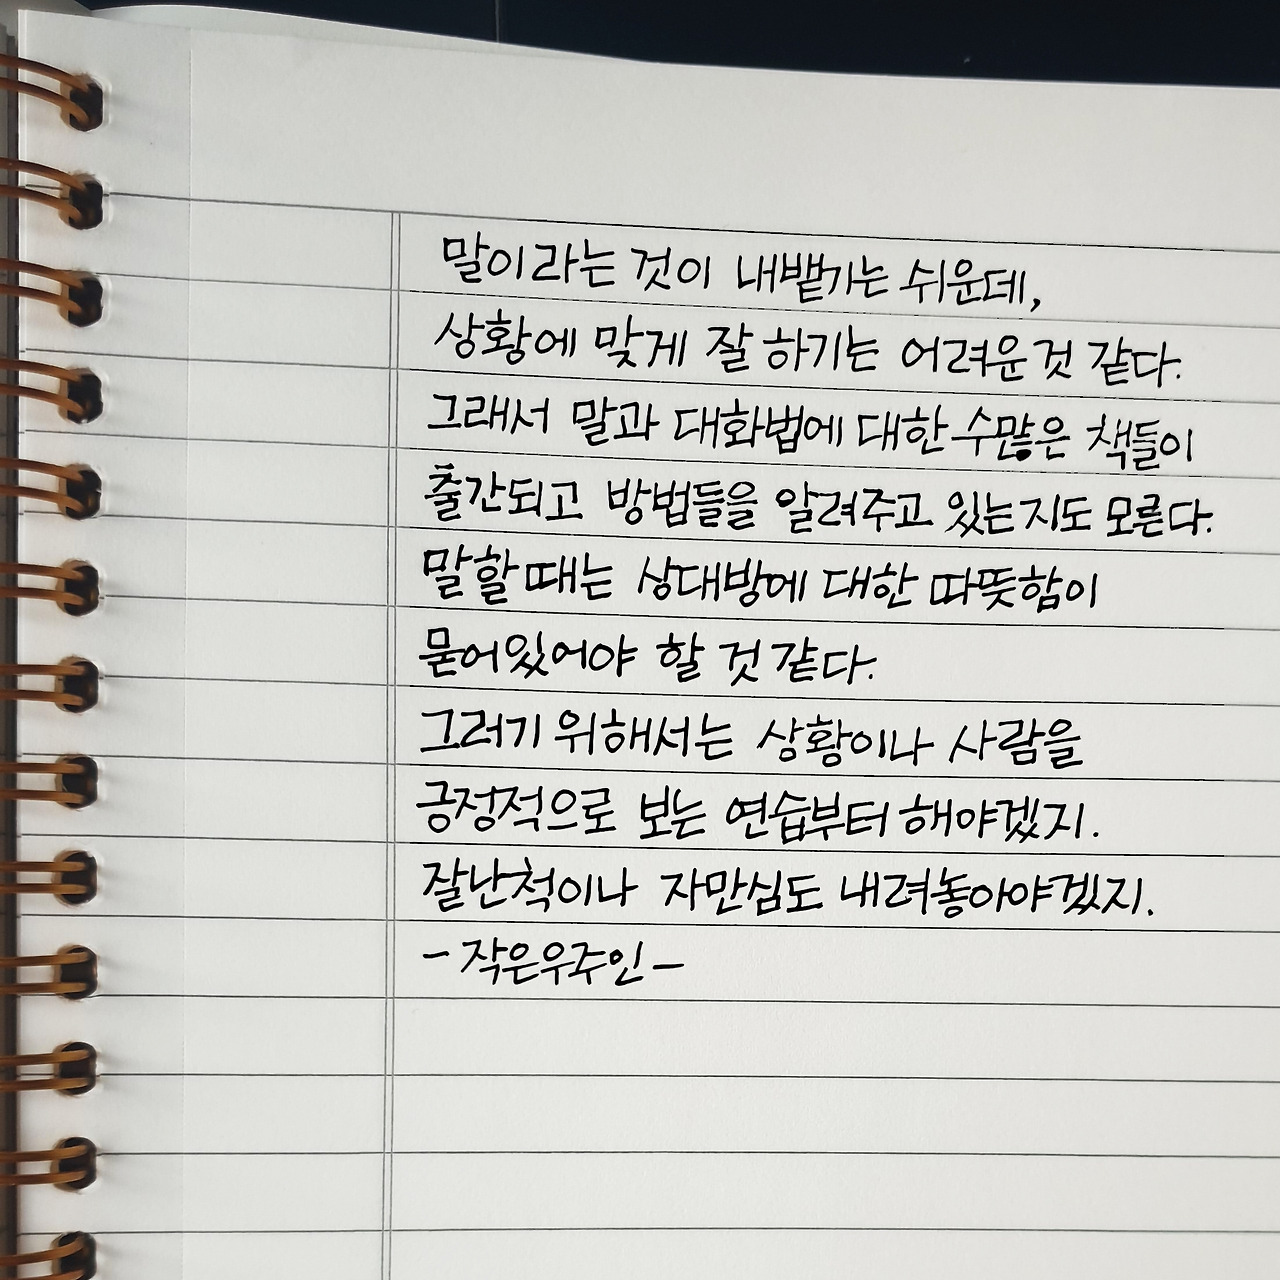 말이라는 것이 내뱉기는 쉬운데,
상황에 맞게 잘 하기는 어려운 것 같다.
그래서 말과 대화법에 대한 수많은 책들이
출간되고 방법들을 알려주고 있는지도 모른다.
말할 때는 상대방에 대한 따뜻함이
묻어있어야 할 것 같다.
그러기 위해서는 상황이나 사람을
긍정적으로 보는 연습부터 해야겠지.
잘난척이나 자만심도 내려놓아야겠지.
- 작은우주인 -